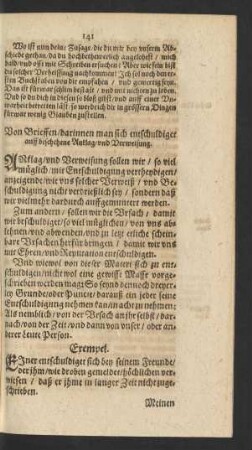 141
Wo ist nun deine Zusage die du mir bey unserm Ab-
schiede gethan/da du hochbetheurlich angelobest / mich
bald vnd offt mit Schreiben ersuchen? Aber wiefein bist
du solcher Verheissung nachkommen? Ich sol noch den er-
sten Buchstaben von dir empfahen / vnd gewertig seyn.
Das ist fürwar schlim bezahlt / vnd mit nichten zu loben.
Vnd so du dich in diesen so bloß gibst/vnd auff einer Vn-
warheit betretten läst/ so würde ich dir in grössern Dingen
fürwar wenig Glauben zustellen.
Von Brieffen/darinnen man sich entschuldiget
auff beschehene Anklag vnd Verweisung.
ANklag vnd Verweisung sollen wir / so viel
müglich/mit Entschuldigung vertheydigen/
anzeigende/wie vns solcher Verweiß / vnd Be-
schuldigung nicht verdrießlich sey / sondern daß
wir vielmehr dardurch auffgemuntert werden.
Zum andern / sollen wir die Vrsach / damit
wir beschuldiget/so viel müglichen/von vns ab-
lehnen vnd abwenden/vnd zu letzt erliche schein-
bare Vrsachen herfür bringen / damit wir vns
mit Ehren vnd Reputation entschuldigen.
Vnd wiewol von dieser Materi sich zu ent-
schuldigen/nicht wol eine gewisse Masse vorge-
schrieben werden mag: So seynd dennoch dreyer-
ley Gründe oder Puncten/darauß ein jeder seine
Entschuldigung nehmen kan/in acht zu nehmen:
Als nemblich/von der Vrsach an jhr selbst/dar-
nach/von der Zeit/vnd dann von vnser / oder an-
derer Leute Person.
Exempel.
EIner entschuldiget sich bey seinem Freunde/
der jhm/wie droben gemeldet/höchlichen ver-
wiesen / daß er jhme in langer Zeit nicht zuge-
schrieben.
Meinen